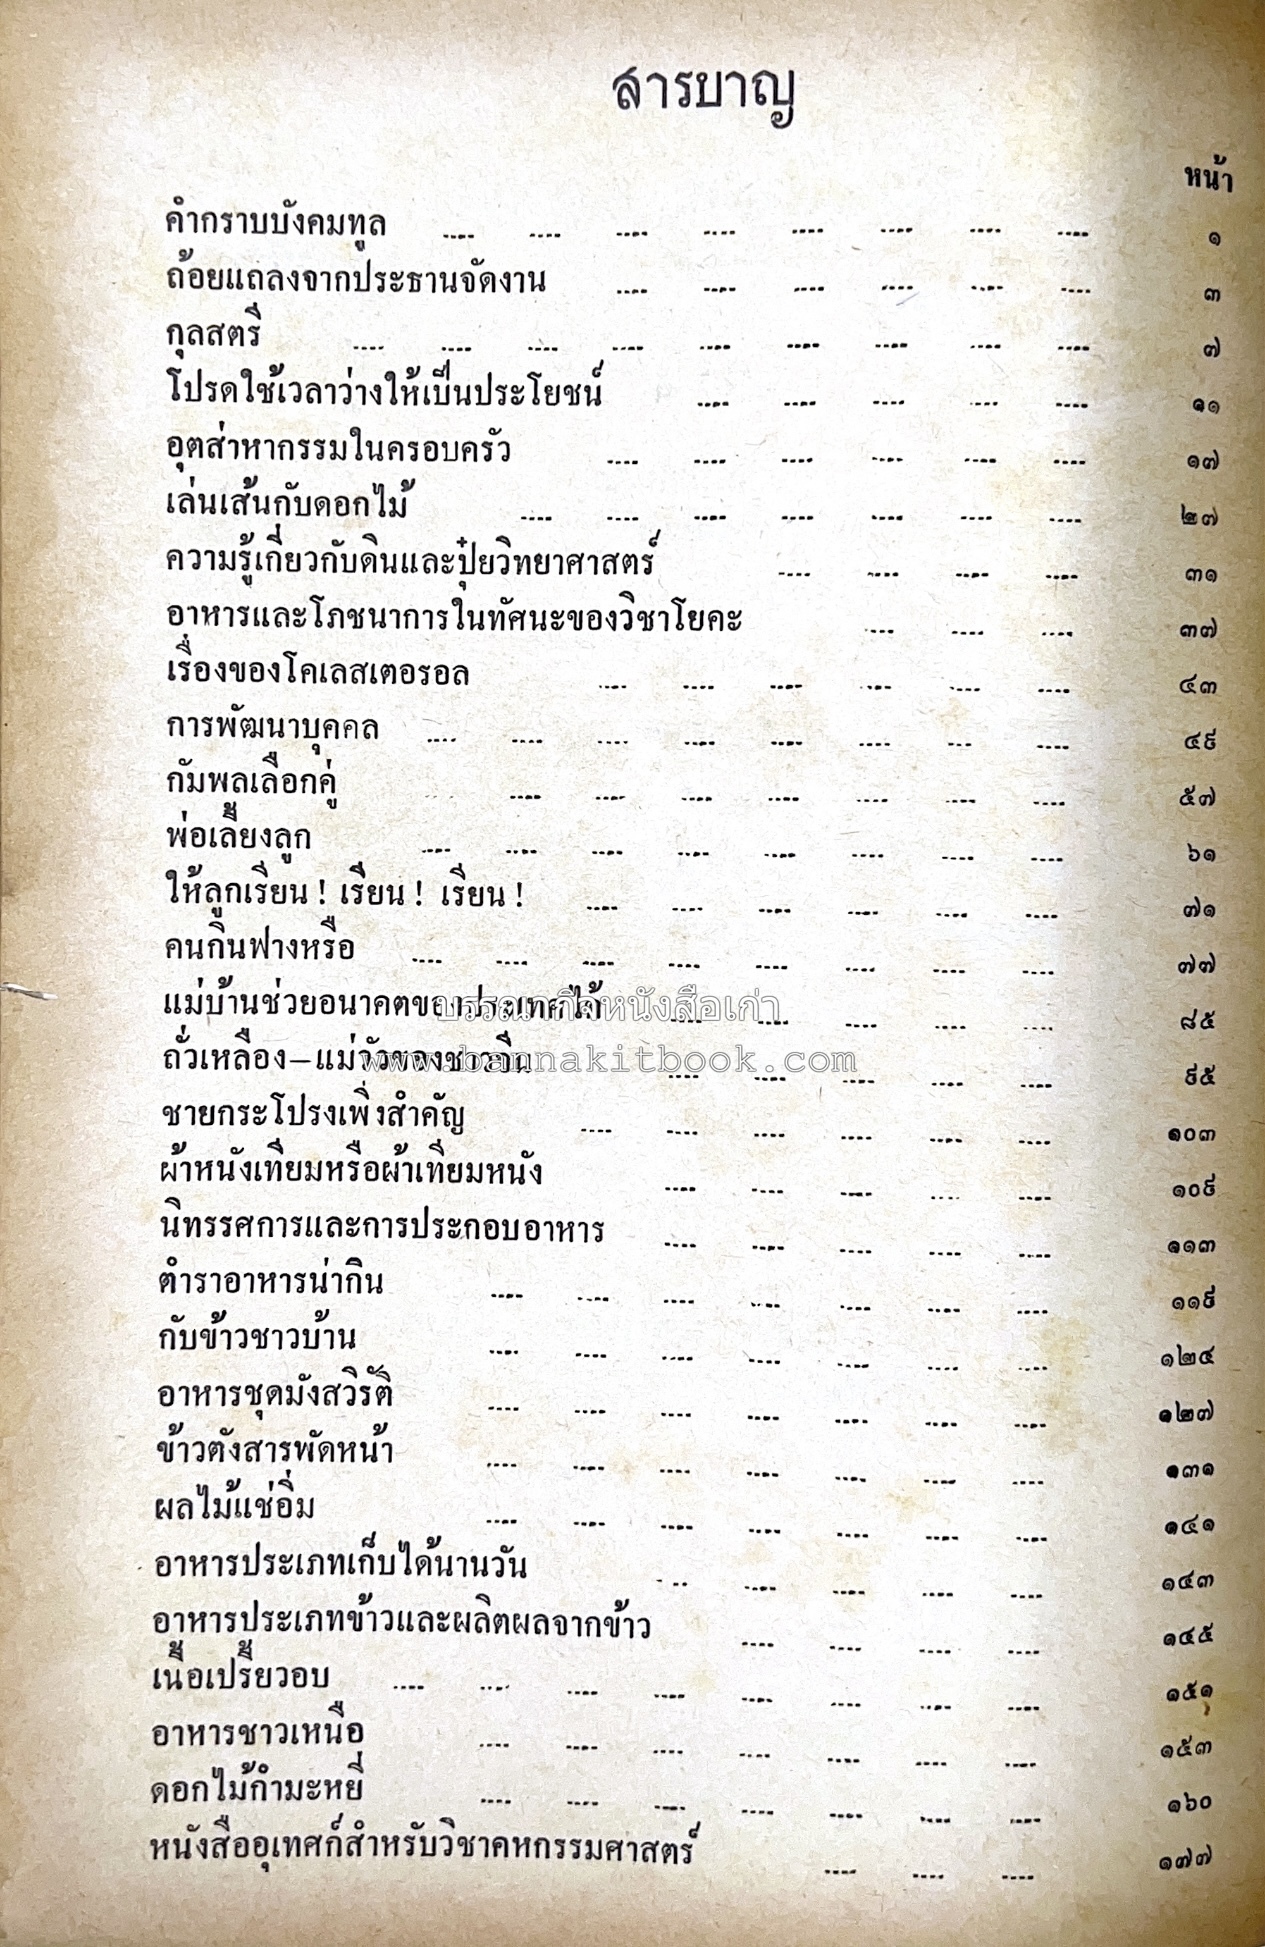 สารบาญ
หน้า
คำกราบบังคมทูล .... .... .... .... .... .... .... .... ๑
ถ้อยแถลงจากประธานจัดงาน .... .... .... .... .... .... ๓
กุลสตรี .... .... .... .... .... .... .... .... .... ๗
โปรดใช้เวลาว่างให้เป็นประโยชน์ .... .... .... .... .... ๑๑
อุตส่าหากรรมในครอบครัว .... .... .... .... .... .... ๑๗
เล่นเส้นกับดอกไม้ .... .... .... .... .... .... .... ๒๗
ความรู้เกี่ยวกับดินและปุ๋ยวิทยาศาสตร์ .... .... .... .... ๓๑
อาหารและโภชนาการในทัศนะของวิชาโยคะ .... .... .... ๓๗
เรื่องของโคเลสเตอรอล .... .... .... .... .... .... ๔๓
การพัฒนาบุคคล .... .... .... .... .... .... .... .... ๔๙
กัมพลเลือกคู่ .... .... .... .... .... .... .... .... ๕๗
พ่อเลี้ยงลูก .... .... .... .... .... .... .... .... ๖๑
ให้ลูกเรียน ! เรียน ! เรียน ! .... .... .... .... .... .... ๗๑
คนกินฟางหรือ .... .... .... .... .... .... .... .... ๗๗
แม่บ้านช่วยอนาคตของประเทศได้ .... .... .... .... .... ๘๕
บรรณากิจหนังสือเก่า
ถั่วเหลือง–แม่วัวของชาวจีน .... .... .... .... .... ๙๕
www.bannakitbook.com
ชายกระโปรงเพิ่งสำคัญ .... .... .... .... .... .... ๑๐๓
ผ้าหนังเทียมหรือผ้าเทียมหนัง .... .... .... .... .... ๑๐๙
นิทรรศการและการประกอบอาหาร .... .... .... .... .... ๑๑๓
ตำราอาหารน่ากิน .... .... .... .... .... .... .... ๑๑๙
กับข้าวชาวบ้าน .... .... .... .... .... .... .... ๑๒๔
อาหารชุดมังสวิรัติ .... .... .... .... .... .... .... ๑๒๗
ข้าวตังสารพัดหน้า .... .... .... .... .... .... .... ๑๓๑
ผลไม้แช่อิ่ม .... .... .... .... .... .... .... ๑๔๑
อาหารประเภทเก็บได้นานวัน .... .... .... .... .... ๑๔๓
อาหารประเภทข้าวและผลิตผลจากข้าว .... .... .... .... ๑๔๕
เนื้อเปรี้ยวอบ .... .... .... .... .... .... .... .... ๑๕๑
อาหารชาวเหนือ .... .... .... .... .... .... .... ๑๕๓
ดอกไม้กำมะหยี่ .... .... .... .... .... .... .... ๑๖๐
หนังสืออุเทศก์สำหรับวิชาคหกรรมศาสตร์ .... .... .... ๑๗๗